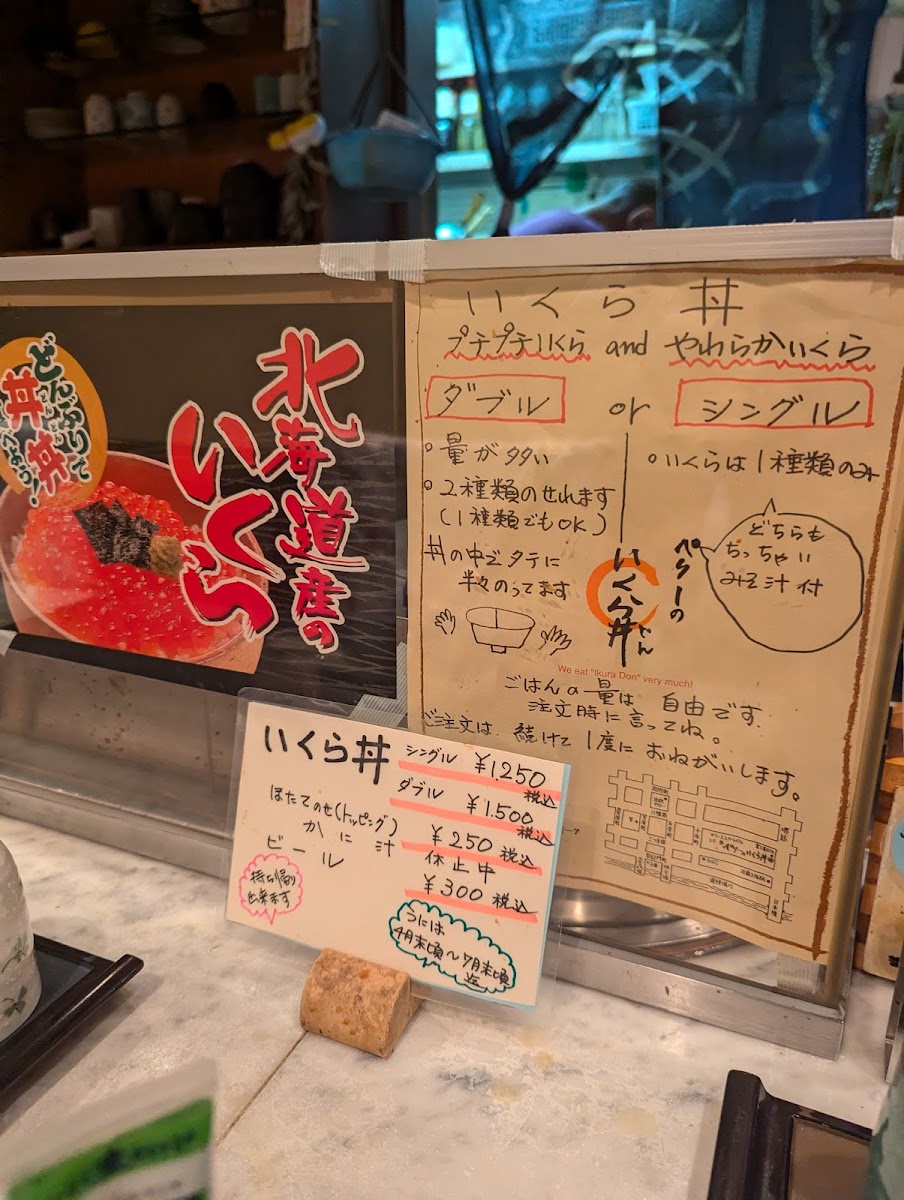 北海道産の
いくら
どんぶりで
丼丼
いくら丼
プチプチいくら and やわらかいくら
ダブル or シングル
。量が多い
。2種類のせれます
(1種類でもOK)
丼の中でタテに
半々のってます
。いくらは1種類のみ
どちらも
ちっちゃい
みそ汁付
ペターの
いくら丼
どん
We eat "Ikura Don" very much!
ごはんの量は 自由です
注文時に言ってね。
ご注文は 続けて 1度に おねがいします。
いくら丼
シングル ¥1250 税込
ダブル ¥1.500 税込
ほたてのせ(トッピング) ¥250 税込
かに汁 休止中
ビール ¥300 税込
持ち帰り
出来ます
うには
4月末頃〜7月末頃
迄